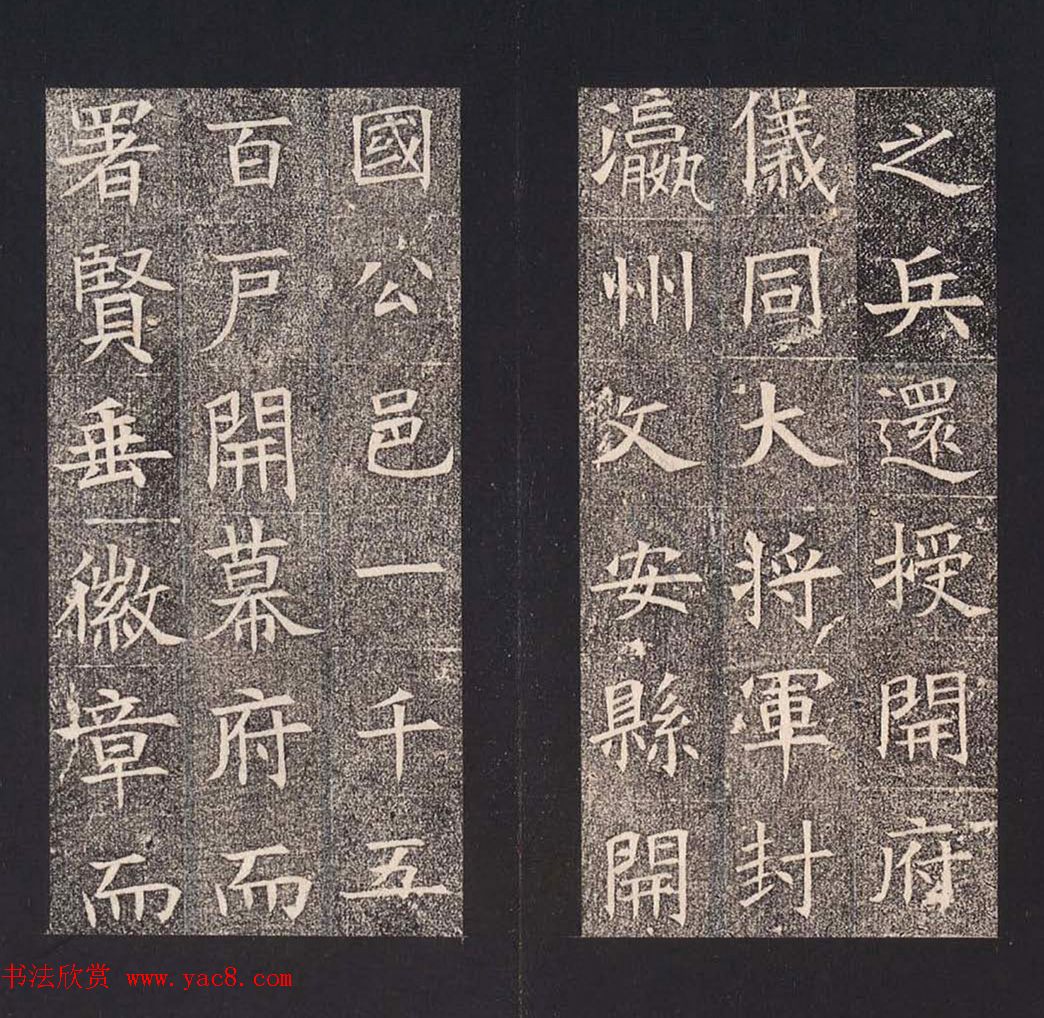 之兵還授開府
儀同大将軍封
瀛州文安縣開
國公邑一千五
百戸開幕府而
署賢垂徽墇而
书法欣赏 www.yac8.com